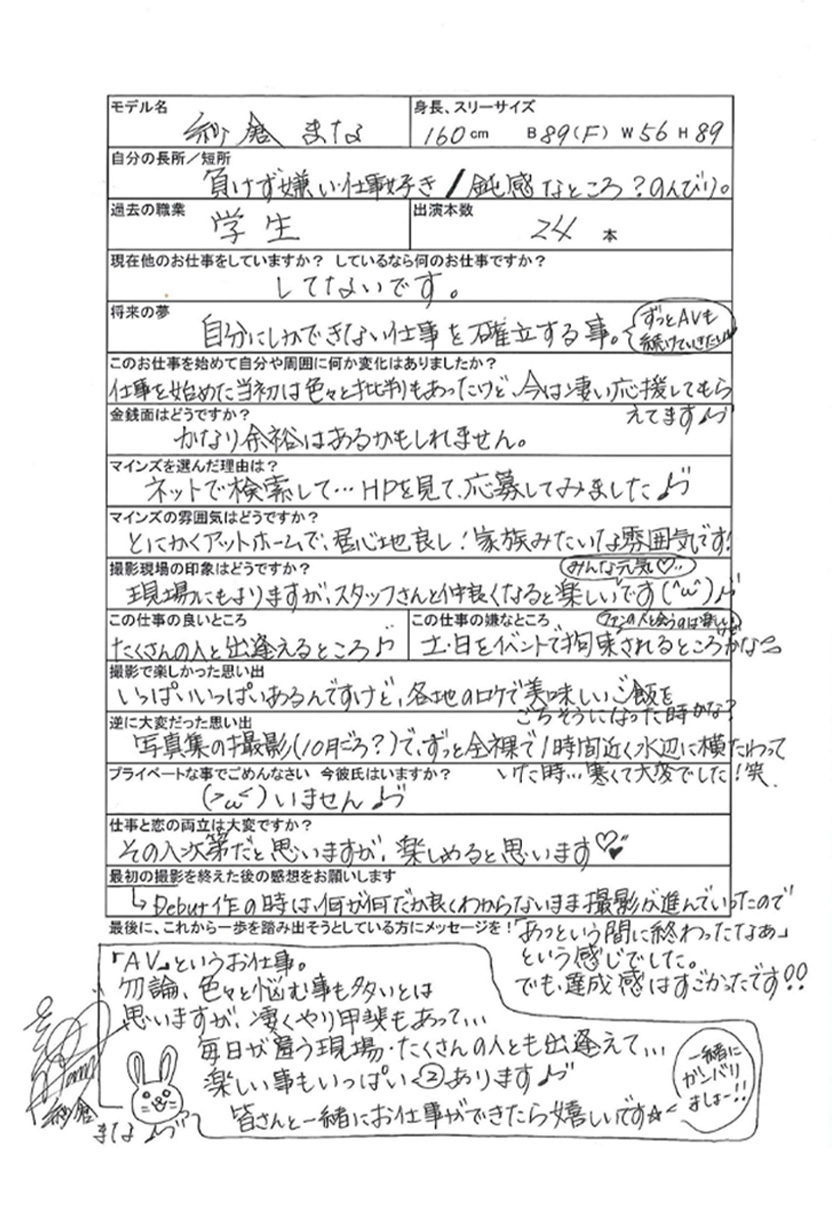 モデル名
紗倉 まな
身長、スリーサイズ
160cm B89(F) W56 H89
自分の長所／短所
負けず嫌い・仕事好き / 鈍感なところ？のんびり。
過去の職業
学生
出演本数
24 本
現在他のお仕事をしていますか？ しているなら何のお仕事ですか？
してないです。
将来の夢
自分にしかできない仕事を確立する事。
ずっとAVも
続けていきたい
このお仕事を始めて自分や周囲に何か変化はありましたか？
仕事を始めた当初は色々と批判もあったけど、今は凄い応援してもら
えてます♪
金銭面はどうですか？
かなり余裕はあるかもしれません。
マインズを選んだ理由は？
ネットで検索して…HPを見て、応募してみました♪
マインズの雰囲気はどうですか？
とにかくアットホームで、居心地良し！家族みたいな雰囲気です!
撮影現場の印象はどうですか？
みんな元気♡‥
現場にもよりますが、スタッフさんと仲良くなると楽しいです(^ω^)♪
この仕事の良いところ
たくさんの人と出逢えるところ♪
この仕事の嫌なところ
ファンの人と会うのは楽しい
土・日をイベントで拘束されるところかな
撮影で楽しかった思い出
いっぱいいっぱいあるんですけど、各地のロケで美味しいご飯を
ごちそうになった時かな？
逆に大変だった思い出
写真集の撮影(10月だろ？)で、ずっと全裸で1時間近く水辺に横たわって
いた時…寒くて大変でした！笑
プライベートな事でごめんなさい 今彼氏はいますか？
(>ω<)いません♪
仕事と恋の両立は大変ですか？
その人次第だと思いますが、楽しめると思います♡♥
最初の撮影を終えた後の感想をお願いします
↳Debut作の時は、何が何だか良くわからないまま撮影が進んでいったので
「あっという間に終わったなぁ」
という感じでした。
でも、達成感はすごかったです!!
最後に、これから一歩を踏み出そうとしている方にメッセージを！
『AV』というお仕事。
勿論、色々と悩む事も多いとは
思いますが、凄くやり甲斐もあって…
毎日が違う現場・たくさんの人とも出逢えて…
楽しい事もいっぱい②あります♪
皆さんと一緒にお仕事ができたら嬉しいです☆
一緒に
ガンバリ
ましょー!!
紗倉
まな♪